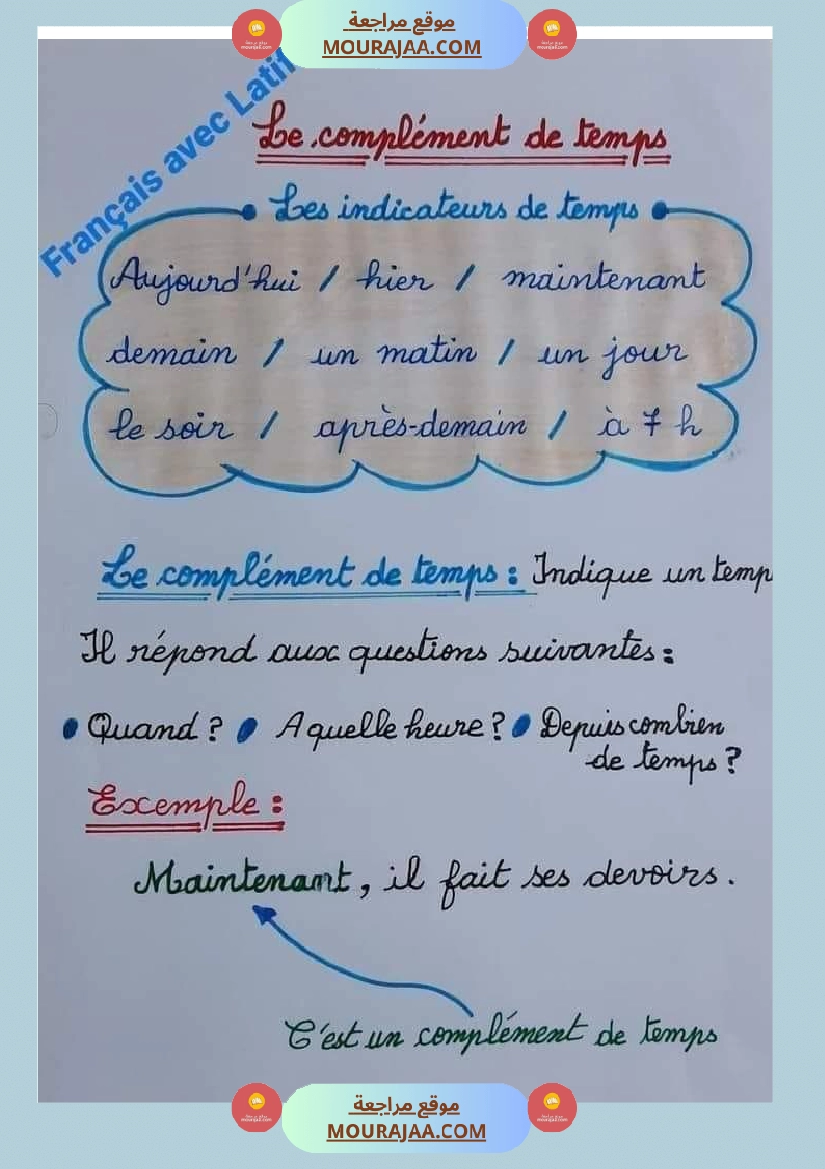 موقع مراجعة
MOURAJAA.COM
Français avec Latif
Le complément de temps
Les indicateurs de temps
Aujourd'hui / hier / maintenant
demain / un matin / un jour
le soir / après-demain / à 7 h
Le complément de temps : Indique un temp
Il répond aux questions suivantes :
Quand ? A quelle heure ? Depuis combien
de temps ?
Exemple :
Maintenant, il fait ses devoirs.
C'est un complément de temps
موقع مراجعة
MOURAJAA.COM